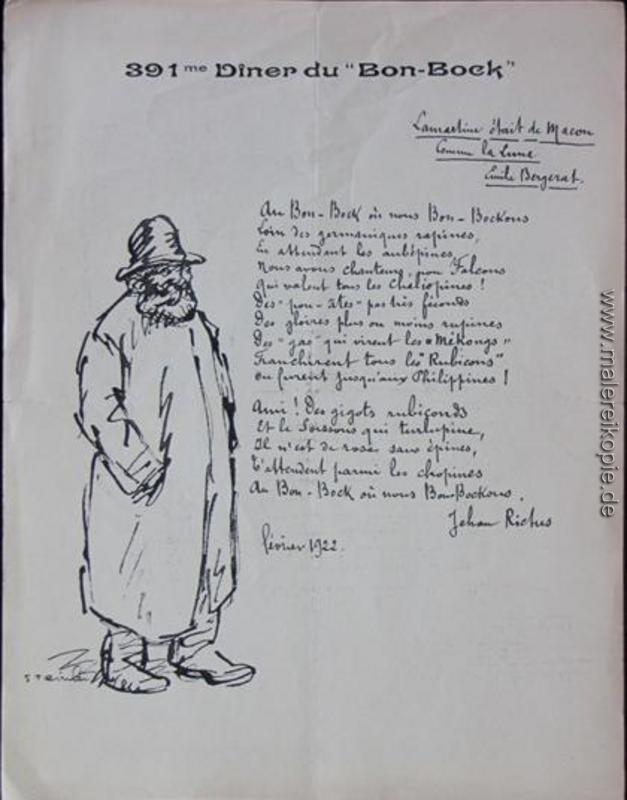 391me Dîner du "Bon-Bock"
Lamartine était de Macon
Comme la Lune
Emile Bergerat.
Au Bon-Bock où nous Bon-Bockons
Loin des germaniques rapines,
En attendant les aubépines,
Nous avons chanteurs, non Falcons
Qui valent tous les Chaliapines !
Des "pou-ètes" pas très féconds
Des gloires plus ou moins rupines
Des "gas" qui virent les "Mékongs"
Franchirent tous les "Rubicons"
ou furent jusqu'aux Philippines !
Ami ! Des gigots rubiconds
Et le Soissons qui turlupine,
Il n'est de roses sans épines,
T'attendent parmi les chopines
Au Bon-Bock où nous Bon-Bockons.
Jehan Rictus
février 1922.
Steinlen
www.malereikopie.de